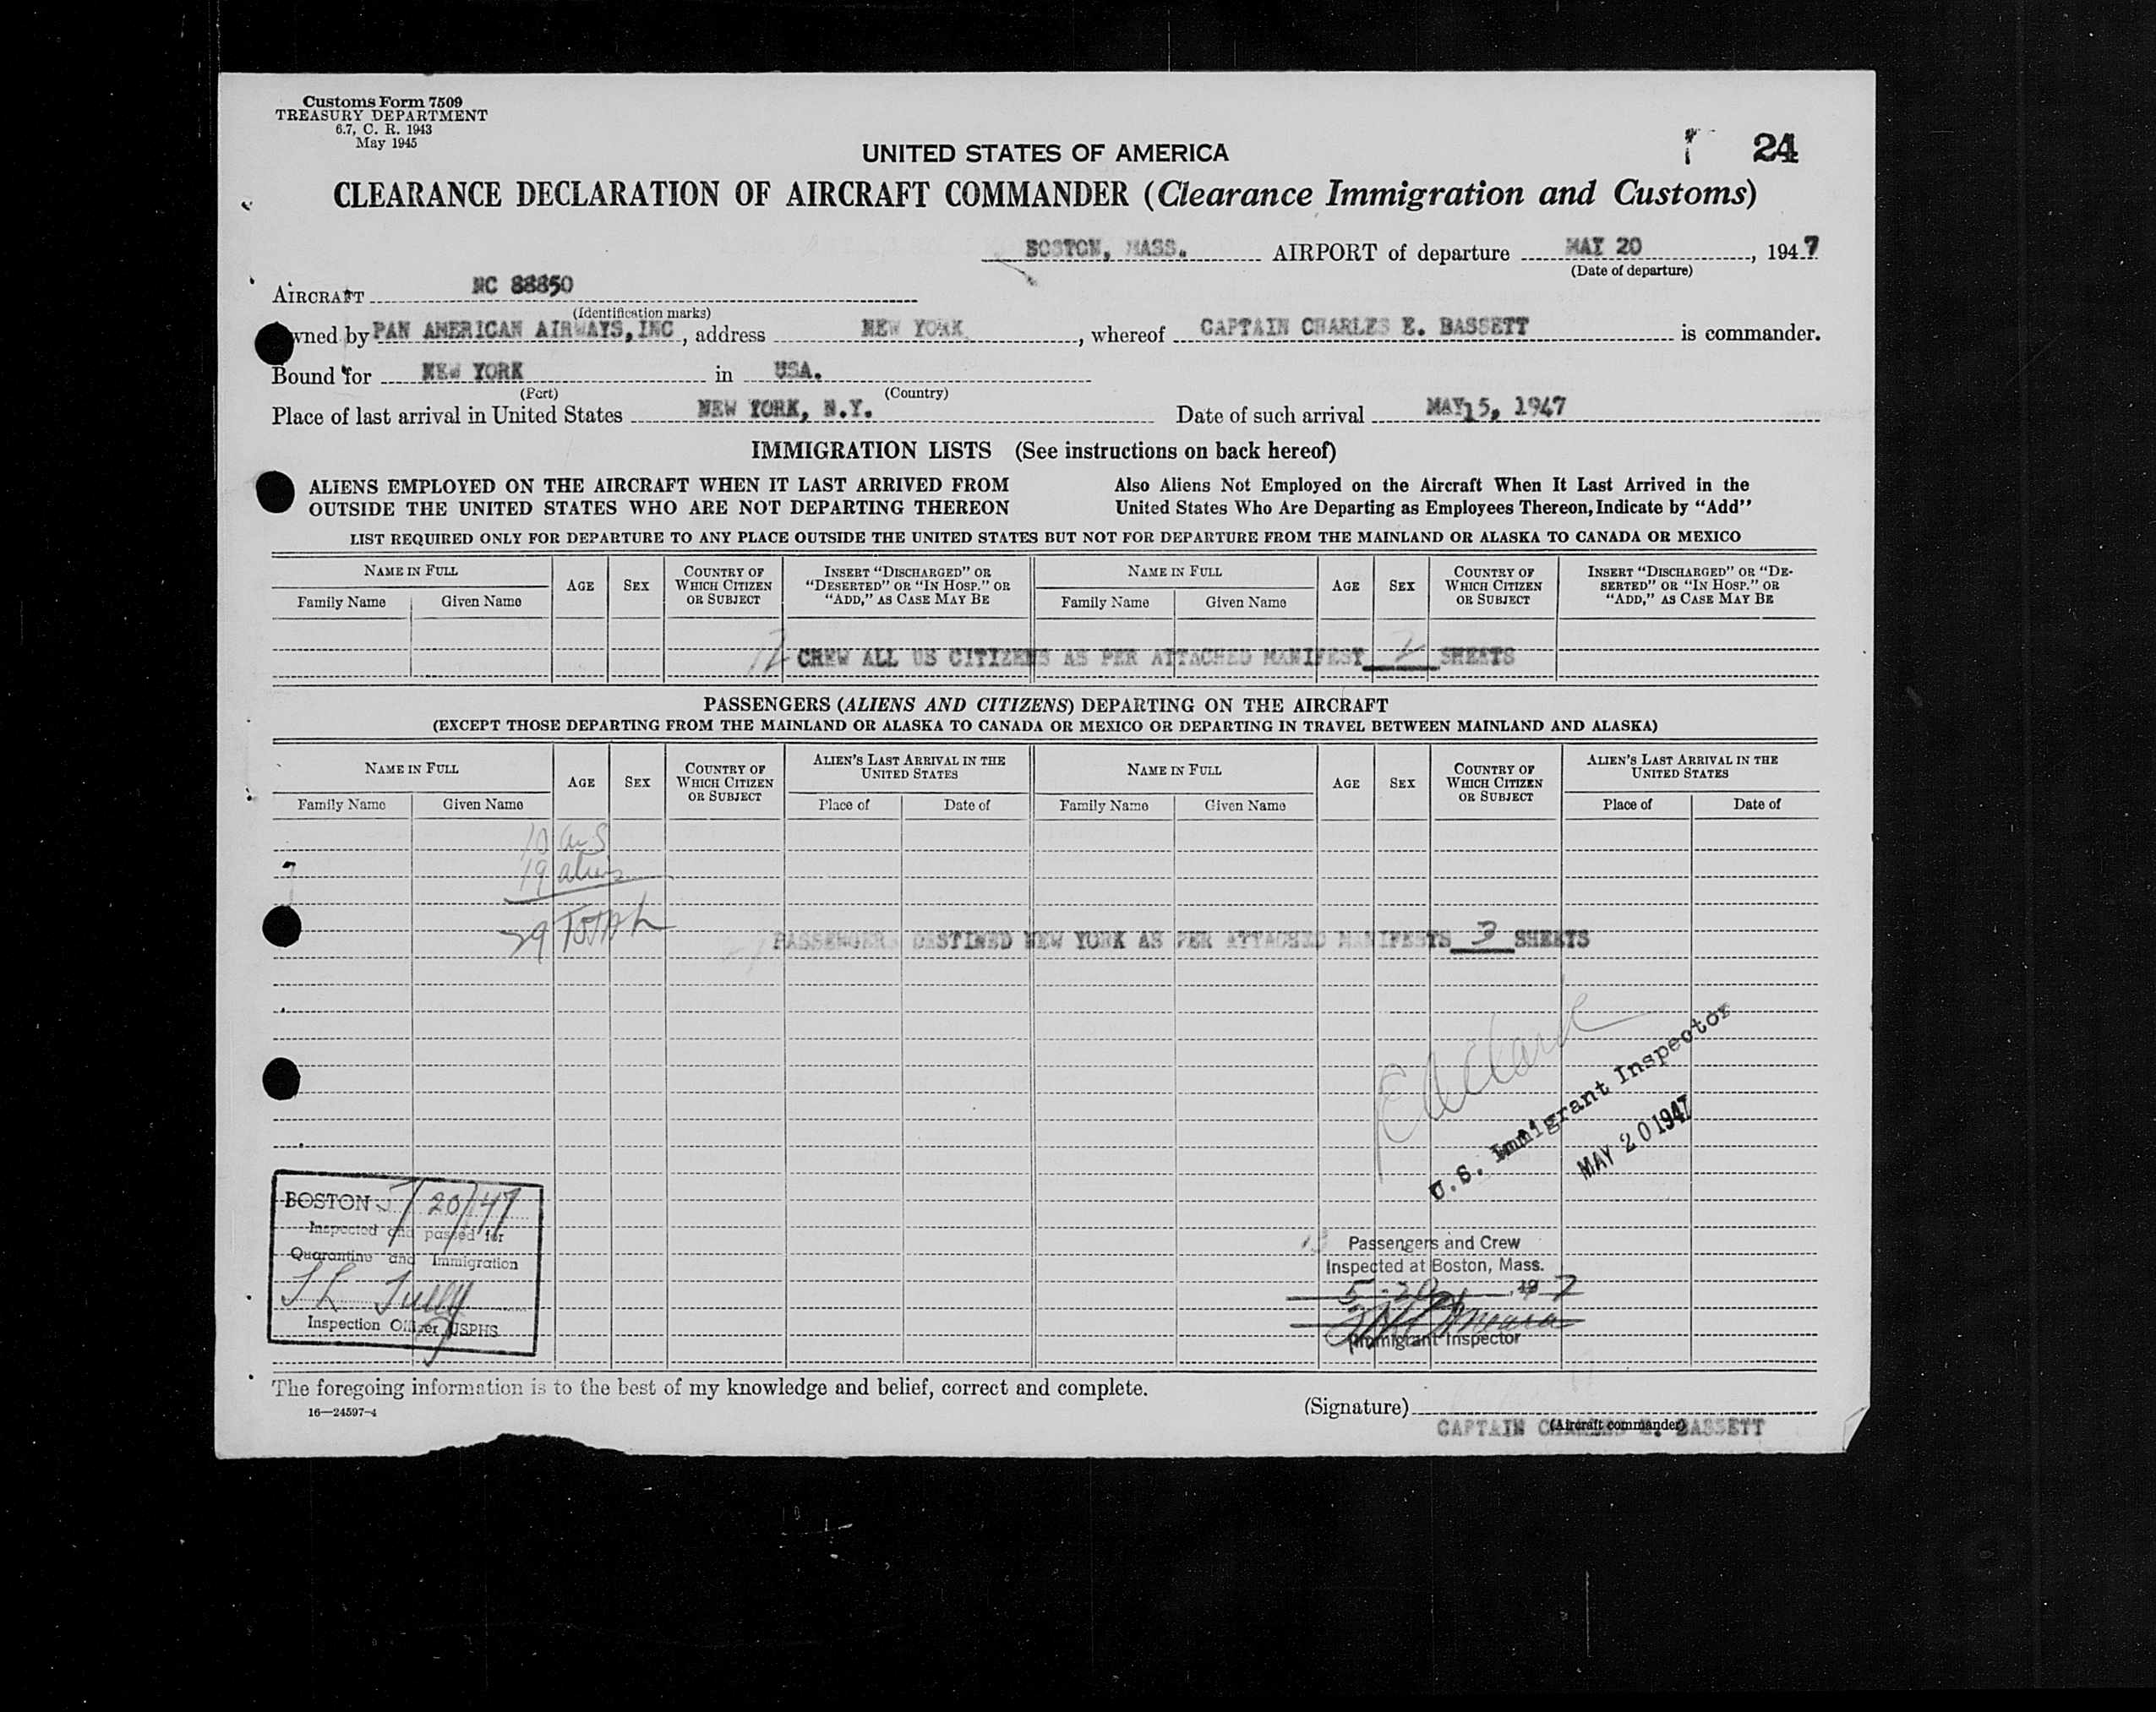 Customs Form 7509
TREASURY DEPARTMENT
6.7, C. R. 1943
May 1945
24
UNITED STATES OF AMERICA
CLEARANCE DECLARATION OF AIRCRAFT COMMANDER (Clearance Immigration and Customs)
BOSTON, MASS. AIRPORT of departure MAY 20, 1947
(Date of departure)
AIRCRAFT NC 88850
(Identification marks)
wned by PAN AMERICAN AIRWAYS, INC, address NEW YORK, whereof CAPTAIN CHARLES E. BASSETT is commander.
Bound for NEW YORK in USA.
(Port) (Country)
Place of last arrival in United States NEW YORK, N.Y. Date of such arrival MAY15, 1947
IMMIGRATION LISTS (See instructions on back hereof)
ALIENS EMPLOYED ON THE AIRCRAFT WHEN IT LAST ARRIVED FROM
OUTSIDE THE UNITED STATES WHO ARE NOT DEPARTING THEREON
Also Aliens Not Employed on the Aircraft When It Last Arrived in the
United States Who Are Departing as Employees Thereon, Indicate by "Add"
LIST REQUIRED ONLY FOR DEPARTURE TO ANY PLACE OUTSIDE THE UNITED STATES BUT NOT FOR DEPARTURE FROM THE MAINLAND OR ALASKA TO CANADA OR MEXICO
NAME IN FULL
Family Name Given Name
AGE
SEX
COUNTRY OF
WHICH CITIZEN
OR SUBJECT
INSERT "DISCHARGED" OR
"DESERTED" OR "IN HOSP." OR
"ADD," AS CASE MAY BE
NAME IN FULL
Family Name Given Name
AGE
SEX
COUNTRY OF
WHICH CITIZEN
OR SUBJECT
INSERT "DISCHARGED" OR "DE-
SERTED" OR "IN HOSP." OR
"ADD," AS CASE MAY BE
12 CREW ALL US CITIZENS AS PER ATTACHED MANIFEST 2 SHEETS
PASSENGERS (ALIENS AND CITIZENS) DEPARTING ON THE AIRCRAFT
(EXCEPT THOSE DEPARTING FROM THE MAINLAND OR ALASKA TO CANADA OR MEXICO OR DEPARTING IN TRAVEL BETWEEN MAINLAND AND ALASKA)
NAME IN FULL
Family Name Given Name
AGE
SEX
COUNTRY OF
WHICH CITIZEN
OR SUBJECT
ALIEN'S LAST ARRIVAL IN THE
UNITED STATES
Place of Date of
NAME IN FULL
Family Name Given Name
AGE
SEX
COUNTRY OF
WHICH CITIZEN
OR SUBJECT
ALIEN'S LAST ARRIVAL IN THE
UNITED STATES
Place of Date of
10
19 aliens
29 TOTAL
PASSENGERS DESTINED NEW YORK AS PER ATTACHED MANIFESTS 3 SHEETS
U.S. Immigrant Inspector
MAY 20 1947
BOSTON 5/20/47
Inspected and passed for
Quarantine and Immigration
Tully
Inspection Officer, USPHS
Passengers and Crew
Inspected at Boston, Mass.
5-20, 1947
Immigrant Inspector
The foregoing information is to the best of my knowledge and belief, correct and complete.
16—24597-4
(Signature)
(Aircraft commander)
CAPTAIN CHARLES E. BASSETT